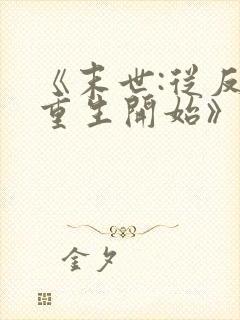 《末世:從反
重生開始》
金夕